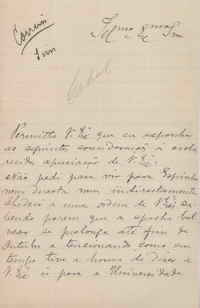 Correia
Illmo Exmo Snr
Permitta V. Exª que eu exponha
as seguintes considerações á escla
recida apreciação de V. Exª:
Não pedi para vir para Espinho
nem directa nem indirectamente
Obedeci a uma ordem de V. Exª sa
bendo porem que a epocha bal
near se prolonga até fim de
Outubro e tencionando como em
tempo tive a honra de dizer a
V. Exª ir para a Universidade